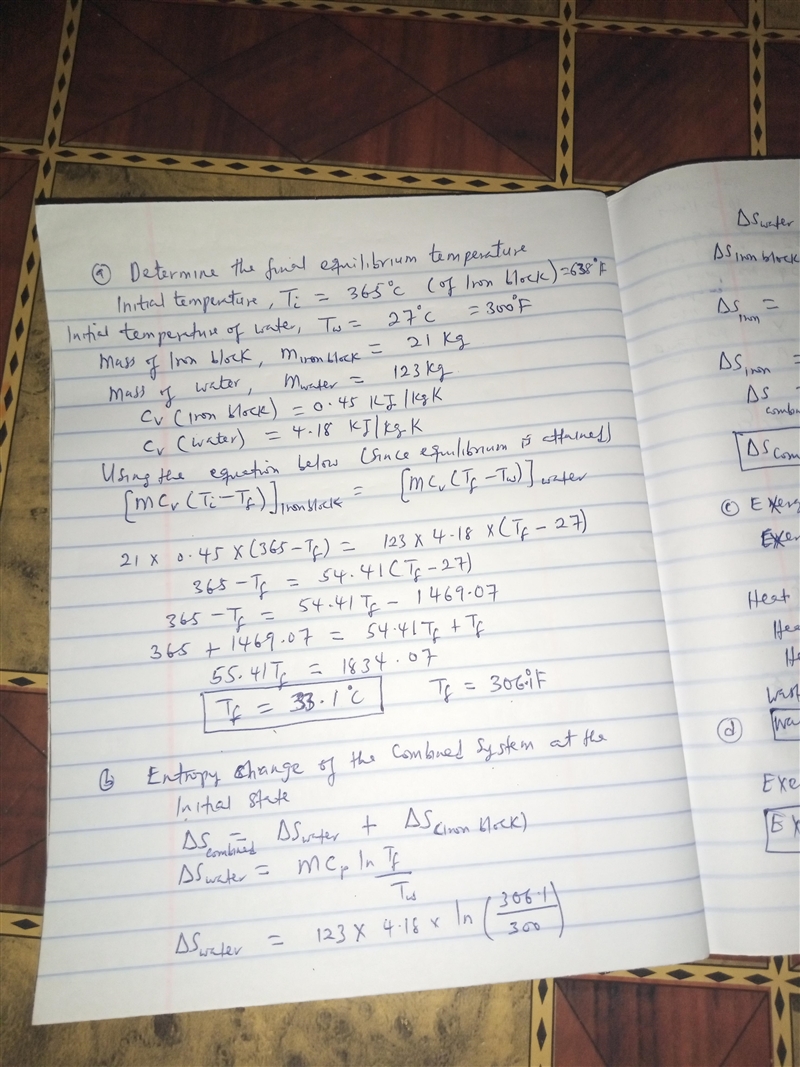 ⓐ Determine the final equilibrium temperature
Initial temperature, Ti = 365°C (of Iron block) = 638°F
Initial temperature of water, Tw = 27°C = 300°F
Mass of Iron block, m iron block = 21 Kg
Mass of water, m water = 123 kg
Cv (Iron block) = 0.45 KJ/kgK
Cv (water) = 4.18 KJ/kgK
Using the equation below (since equilibrium is attained)
[MCv (Ti - Tf)] iron block = [MCv (Tf - Tw)] water
21 x 0.45 x (365 - Tf) = 123 x 4.18 x (Tf - 27)
365 - Tf = 54.41 (Tf - 27)
365 - Tf = 54.41 Tf - 1469.07
365 + 1469.07 = 54.41 Tf + Tf
55.41 Tf = 1834.07
Tf = 33.1°C Tf = 306.1°F
ⓑ Entropy change of the Combined System at the
Initial State
ΔS combined = ΔS water + ΔS (iron block)
ΔS water = MCp ln Tf/Tw
ΔS water = 123 x 4.18 x ln (306.1/300)
ΔS water
ΔS iron block
ΔS iron =
ΔS iron =
ΔS
ΔS
ⓒ
Heat
ⓓ